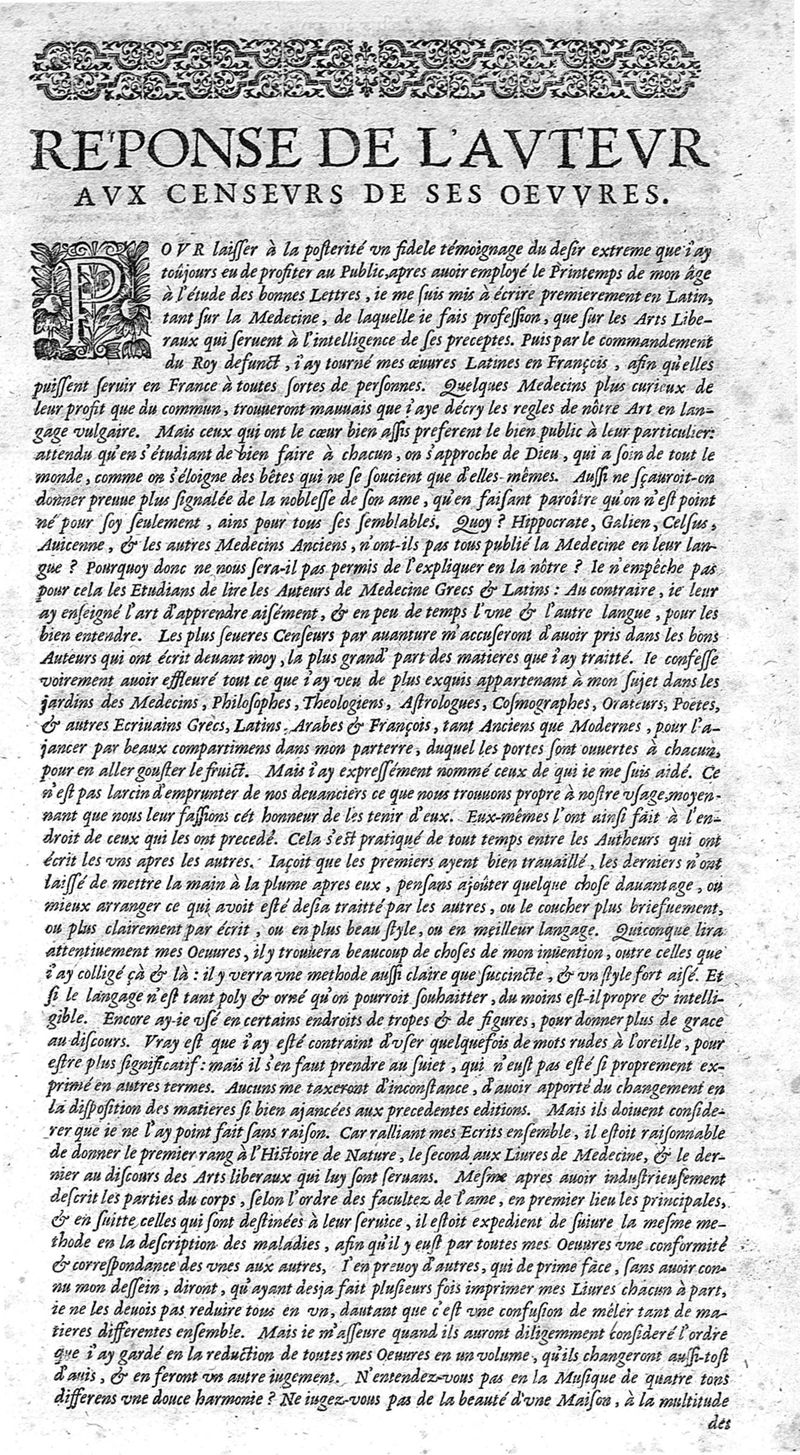 RE'PONSE DE L'AVTEVR
AVX CENSEVRS DE SES OEVVRES.
POVR laiſſer à la poſterité vn fidele témoignage du deſir extreme que i'ay
toûjours eu de profiter au Public, apres auoir employé le Printemps de mon âge
à l'étude des bonnes Lettres, ie me ſuis mis à écrire premierement en Latin,
tant ſur la Medecine, de laquelle ie fais profeſſion, que ſur les Arts Libe-
raux qui ſeruent à l'intelligence de ſes preceptes. Puis par le commandement
du Roy defunct, i'ay tourné mes œuures Latines en François, afin qu'elles
puiſſent ſeruir en France à toutes ſortes de perſonnes. Quelques Medecins plus curieux de
leur profit que du commun, trouueront mauuais que i'aye décry les regles de nôtre Art en lan-
gage vulgaire. Mais ceux qui ont le cœur bien aſſis preferent le bien public à leur particulier:
attendu qu'en s'étudiant de bien faire à chacun, on s'approche de Dieu, qui a ſoin de tout le
monde, comme on s'éloigne des bêtes qui ne ſe ſoucient que d'elles-mêmes. Auſſi ne ſçauroit-on
donner preuue plus ſignalée de la nobleſſe de ſon ame, qu'en faiſant paroître qu'on n'eſt point
né pour ſoy ſeulement, ains pour tous ſes ſemblables. Quoy ? Hippocrate, Galien, Celſus,
Auicenne, & les autres Medecins Anciens, n'ont-ils pas tous publié la Medecine en leur lan-
gue ? Pourquoy donc ne nous ſera-il pas permis de l'expliquer en la nôtre ? Ie n'empêche pas
pour cela les Etudians de lire les Auteurs de Medecine Grecs & Latins : Au contraire, ie leur
ay enſeigné l'art d'apprendre aiſément, & en peu de temps l'vne & l'autre langue, pour les
bien entendre. Les plus ſeueres Cenſeurs par auanture m'accuſeront d'auoir pris dans les bons
Auteurs qui ont écrit deuant moy, la plus grand' part des matieres que i'ay traitté. Ie confeſſe
voirement auoir effleuré tout ce que i'ay veu de plus exquis appartenant à mon ſujet dans les
jardins des Medecins, Philoſophes, Theologiens, Aſtrologues, Coſmographes, Orateurs, Poëtes,
& autres Ecriuains Grecs, Latins, Arabes & François, tant Anciens que Modernes, pour l'a-
jancer par beaux compartimens dans mon parterre, duquel les portes ſont ouuertes à chacun,
pour en aller gouſter le fruict. Mais i'ay expreſſément nommé ceux de qui ie me ſuis aidé. Ce
n'eſt pas larcin d'emprunter de nos deuanciers ce que nous trouuons propre à noſtre vſage, moyen-
nant que nous leur faſſions cét honneur de les tenir d'eux. Eux-mêmes l'ont ainſi fait à l'en-
droit de ceux qui les ont precedé. Cela s'eſt pratiqué de tout temps entre les Autheurs qui ont
écrit les vns apres les autres. Iaçoit que les premiers ayent bien trauaillé, les derniers n'ont
laiſſé de mettre la main à la plume apres eux, penſans ajoûter quelque choſe dauantage, ou
mieux arranger ce qui avoit eſté deſia traitté par les autres, ou le coucher plus briefuement,
ou plus clairement par écrit, ou en plus beau ſtyle, ou en meilleur langage. Quiconque lira
attentiuement mes Oeuures, il y trouuera beaucoup de choſes de mon inuention, outre celles que
i'ay colligé çà & là : il y verra vne methode auſſi claire que ſuccincte, & vn ſtyle fort aiſé. Et
ſi le langage n'eſt tant poly & orné qu'on pourroit ſouhaitter, du moins eſt-il propre & intelli-
gible. Encore ay-ie vſé en certains endroits de tropes & de figures, pour donner plus de grace
au diſcours. Vray eſt que i'ay eſté contraint d'vſer quelquefois de mots rudes à l'oreille, pour
eſtre plus ſignificatif: mais il s'en faut prendre au ſuiet, qui n'euſt pas eſté ſi proprement ex-
primé en autres termes. Aucuns me taxeront d'inconſtance, d'auoir apporté du changement en
la diſpoſition des matieres ſi bien ajancées aux precedentes editions. Mais ils doiuent conſide-
rer que ie ne l'ay point fait ſans raiſon. Car ralliant mes Ecrits enſemble, il eſtoit raiſonnable
de donner le premier rang à l'Hiſtoire de Nature, le ſecond aux Liures de Medecine, & le der-
nier au diſcours des Arts liberaux qui luy ſont ſeruans. Meſme apres auoir induſtrieuſement
deſcrit les parties du corps, ſelon l'ordre des facultez de l'ame, en premier lieu les principales,
& en ſuitte celles qui ſont deſtinées à leur ſeruice, il eſtoit expedient de ſuiure la meſme me-
thode en la deſcription des maladies, afin qu'il y euſt par toutes mes Oeuures vne conformité
& correſpondance des vnes aux autres. I'en preuoy d'autres, qui de prime face, ſans auoir con-
nu mon deſſein, diront, qu'ayant desja fait pluſieurs fois imprimer mes Liures chacun à part,
ie ne les deuois pas reduire tous en vn, dautant que c'eſt vne confuſion de mêler tant de ma-
tieres differentes enſemble. Mais ie m'aſſeure quand ils auront diligemment conſideré l'ordre
que i'ay gardé en la reduction de toutes mes Oeuures en vn volume, qu'ils changeront auſſi-toſt
d'auis, & en feront vn autre iugement. N'entendez-vous pas en la Muſique de quatre tons
differens vne douce harmonie ? Ne iugez-vous pas de la beauté d'vne Maiſon, à la multitude
des